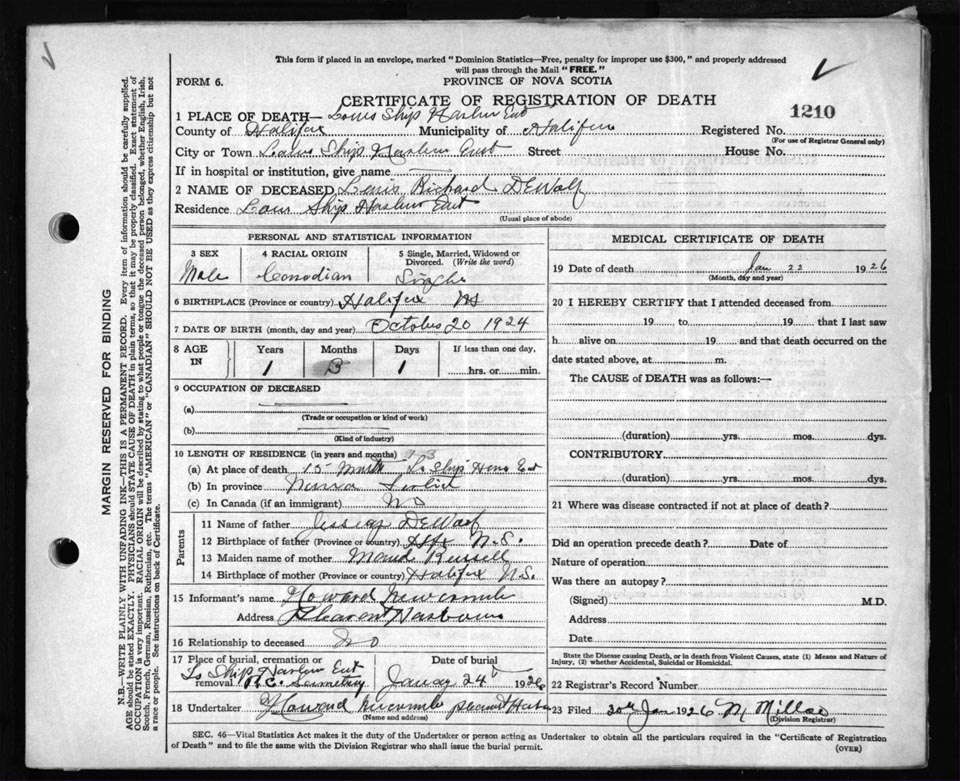 This form if placed in an envelope, marked "Dominion Statistics—Free, penalty for improper use $300," and properly addressed
will pass through the Mail "FREE."
FORM 6.
PROVINCE OF NOVA SCOTIA
CERTIFICATE OF REGISTRATION OF DEATH
1210
1 PLACE OF DEATH— Ship Harbor
County of Halifax Municipality of Halifax Registered No.
(For use of Registrar General only)
City or Town Ship Harbor East Street House No.
If in hospital or institution, give name
2 NAME OF DECEASED Richard DeWolf
Residence Ship Harbor East
(Usual place of abode)
PERSONAL AND STATISTICAL INFORMATION
3 SEX Male
4 RACIAL ORIGIN Canadian
5 Single, Married, Widowed or Divorced. (Write the word) Single
6 BIRTHPLACE (Province or country) Halifax NS
7 DATE OF BIRTH (month, day and year) October 20 1924
8 AGE IN
Years Months Days If less than one day,
1 3 1 hrs. or min.
9 OCCUPATION OF DECEASED
(a)
(Trade or occupation or kind of work)
(b)
(Kind of industry)
10 LENGTH OF RESIDENCE (in years and months)
(a) At place of death 15 Ship
(b) In province Nova
(c) In Canada (if an immigrant) No
Parents
11 Name of father DeWolf
12 Birthplace of father (Province or country) Hfx N.S.
13 Maiden name of mother Russell
14 Birthplace of mother (Province or country) Halifax N.S.
15 Informant's name Howard Newcombe
Address Pleasant Harbour
16 Relationship to deceased No
17 Place of burial, cremation or removal Ship Harbor R.C. Date of burial 24 1926
18 Undertaker Howard Newcombe Pleasant
(Name and address)
MEDICAL CERTIFICATE OF DEATH
19 Date of death Jan 22 1926
(Month, day and year)
20 I HEREBY CERTIFY that I attended deceased from
19 , to 19 that I last saw
h alive on 19 and that death occurred on the
date stated above, at m.
The CAUSE of DEATH was as follows:—
(duration) yrs. mos. dys.
CONTRIBUTORY
(duration) yrs. mos. dys.
21 Where was disease contracted if not at place of death?
Did an operation precede death? Date of
Nature of operation
Was there an autopsy?
(Signed) M.D.
Address
Date
State the Disease causing Death, or in death from Violent Causes, state (1) Means and Nature of
Injury, (2) whether Accidental, Suicidal or Homicidal.
22 Registrar's Record Number
23 Filed Jan 1926
(Division Registrar)
SEC. 46—Vital Statistics Act makes it the duty of the Undertaker or person acting as Undertaker to obtain all the particulars required in the "Certificate of Registration
of Death" and to file the same with the Division Registrar who shall issue the burial permit.
(OVER)
MARGIN RESERVED FOR BINDING
N.B.—WRITE PLAINLY WITH UNFADING INK—THIS IS A PERMANENT RECORD. Every item of information should be carefully supplied.
AGE should be stated EXACTLY. PHYSICIANS should STATE CAUSE OF DEATH in plain terms, so that it may be properly classified. Exact statement of
OCCUPATION is very important. RACIAL ORIGIN will be described by stating to what people or tongue the deceased person belonged, whether English, Irish,
Scotch, French, German, Russian, Ruthenian, etc. The terms "AMERICAN" or "CANADIAN" SHOULD NOT BE USED as they express citizenship but not
a race or people. See instructions on back of Certificate.